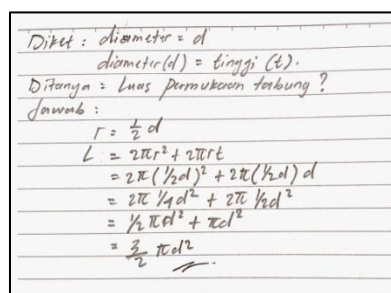 Diket : diameter = d
diameter (d) = tinggi (t).
Ditanya = Luas permukaan tabung ?
Jawab :
r = ½ d
L = 2πr² + 2πrt
= 2π (½d)² + 2π (½d) d
= 2π ¼d² + 2π ½d²
= ½ πd² + πd²
= 3/2 πd²